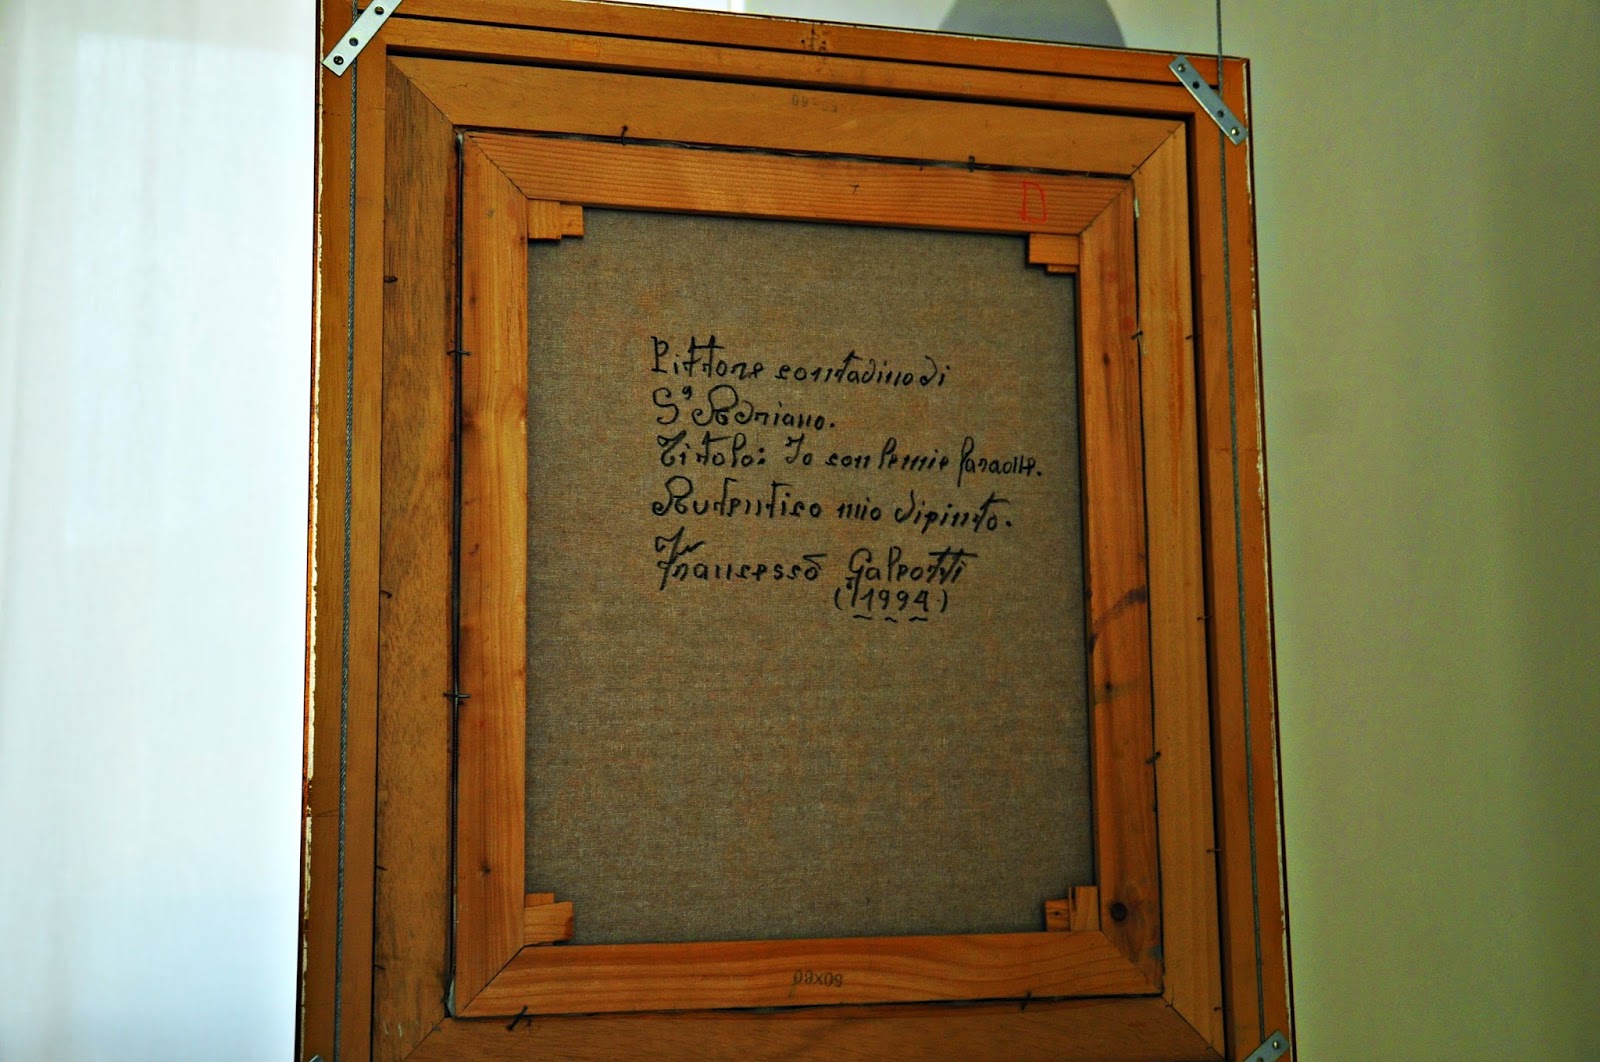 50x60
D
Pittore contadino di
Sᵃ Adriano.
Titolo: Io con le mie faraone.
Autentico mio dipinto.
Francesco Galeotti
(1994)
50x60